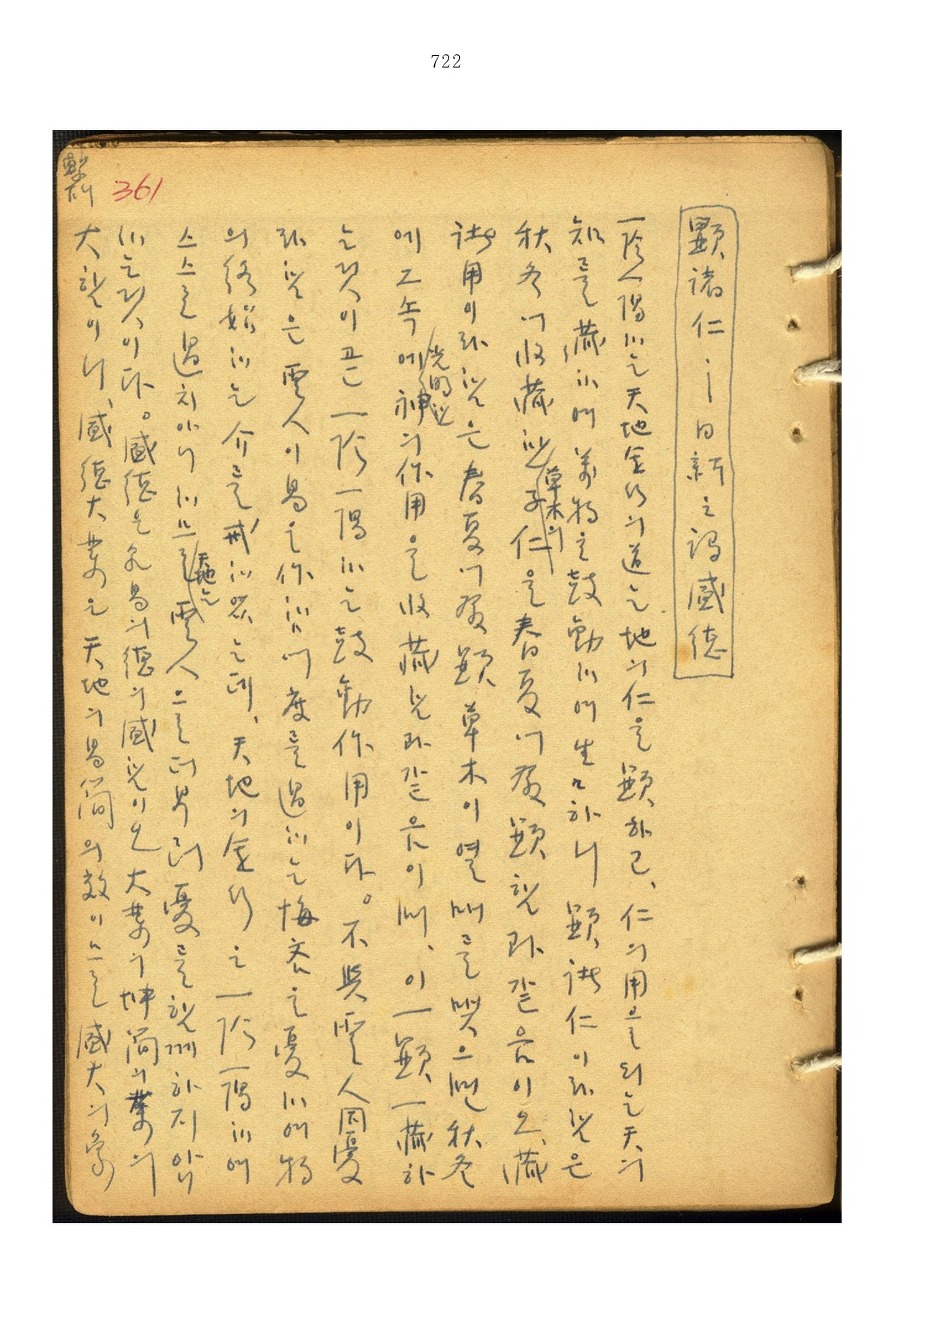 722
繫下
361
顯諸仁 ― 日新之謂盛德
一陰一陽하는 天地全行의 道는 地의 仁을 顯하고、仁의 用을 되는 天의
知를 藏하여 萬物을 鼓動하여 生々하니 顯諸仁이라 함은
秋冬에 收藏한 草木의 子仁을 春夏에 發顯함과 같음이오、藏
諸用이라 함은 春夏에 發顯 草木이 열매를 맺으면 秋冬
에 그 속에 光明한 神의 作用을 收藏함과 같음이며、이 一顯一藏하
는 것이 곧 一陰一陽하는 鼓動作用이다。不與聖人同憂
라 함은 聖人이 易을 作하여 度를 過하는 悔吝을 憂하여 物
의 終始하는 介를 戒하였는데、天地의 全行은 一陰一陽하여
스스로 過치 아니하므로 天地는 聖人으로 더부러 憂를 함께 하지 아니
하는 것이다。盛德은 乾易의 德의 盛함이오 大業은 坤簡의 業의
大함이니、盛德大業은 天地의 易簡의 效이므로 盛大의 象